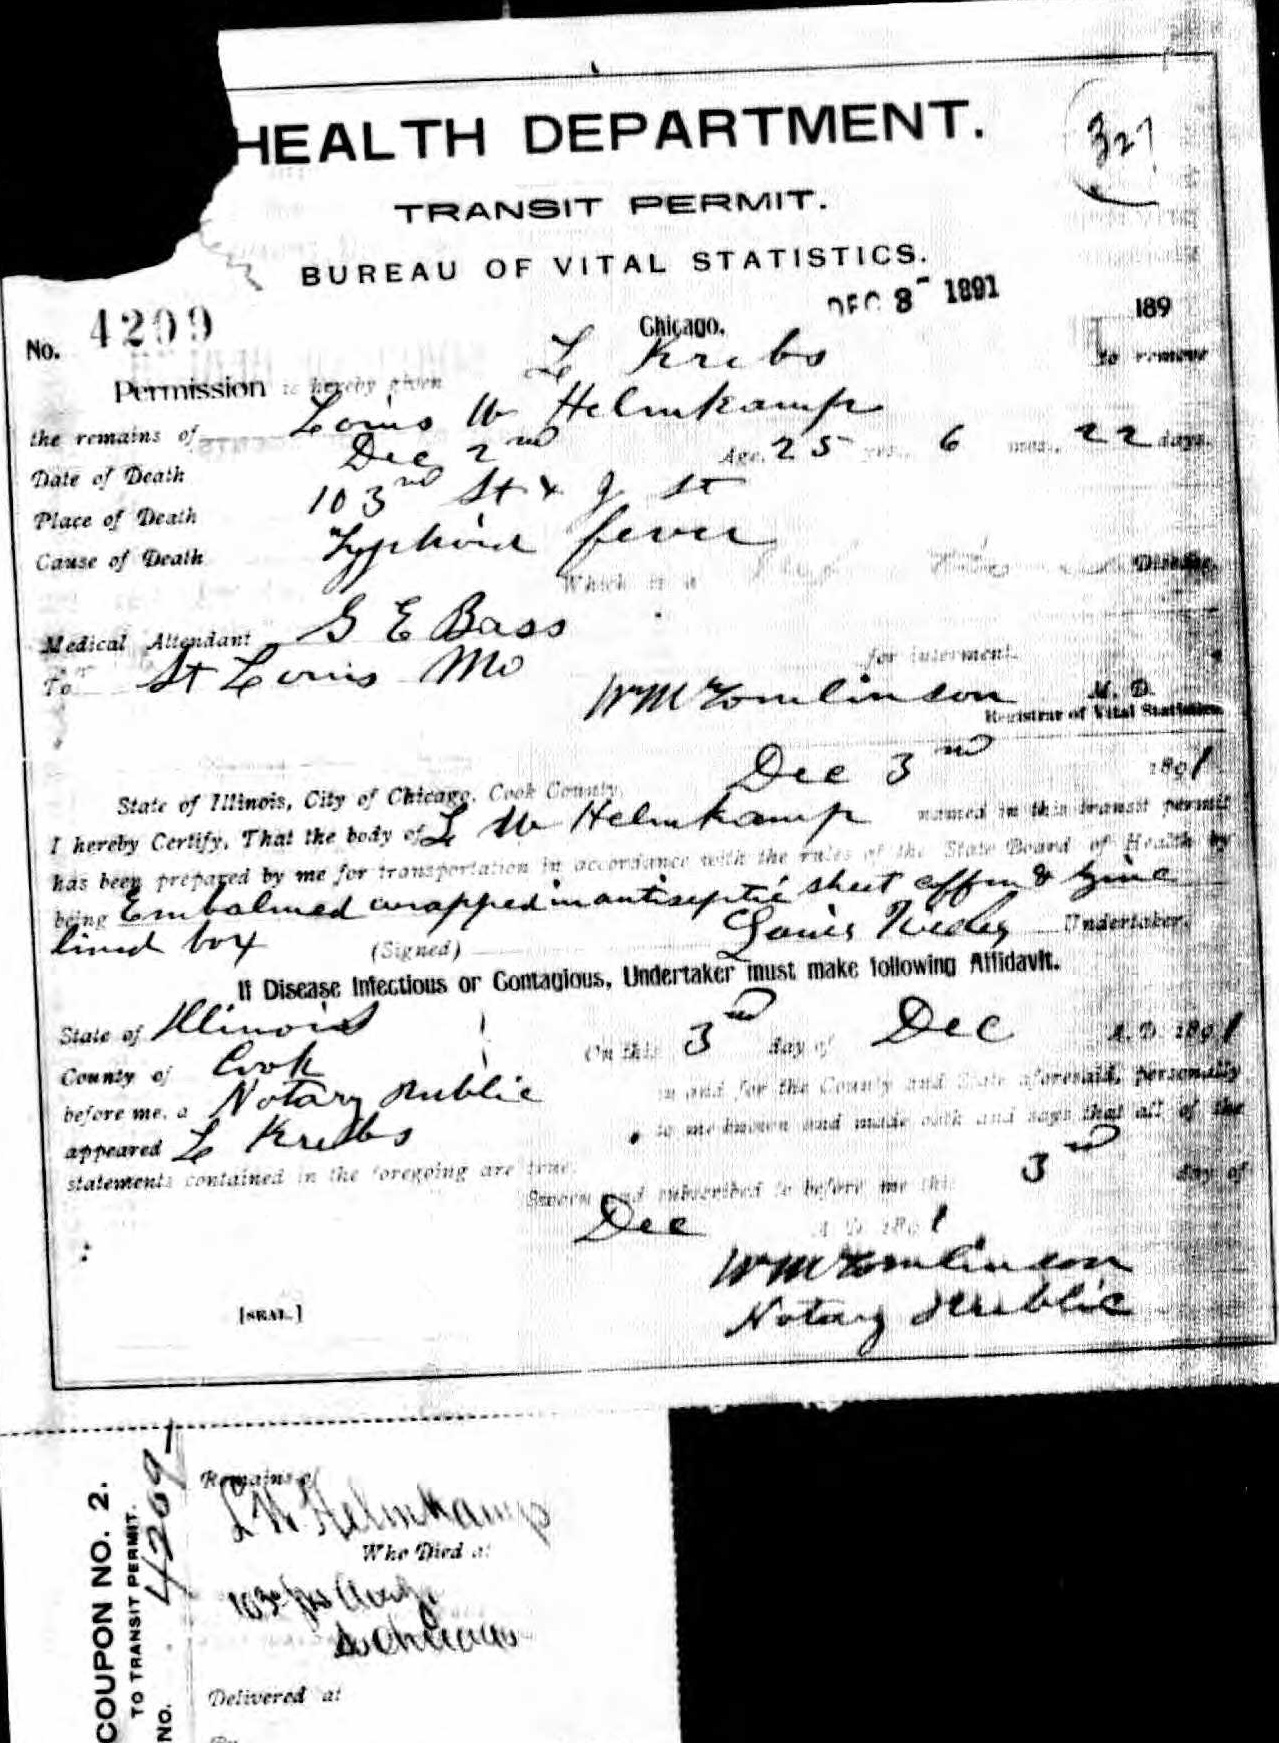 HEALTH DEPARTMENT.
327
TRANSIT PERMIT.
BUREAU OF VITAL STATISTICS.
No. 4209 Chicago, DEC 3 1891 189
Permission is hereby given L Krebs to remove
the remains of Louis W Helmkamp
Date of Death Dec 2nd Age, 25 yrs., 6 mos., 22 days.
Place of Death 103nd St & J St
Cause of Death Typhoid fever
Which is a Disease.
Medical Attendant G E Bass
To St Louis Mo for interment.
Wm Tomlinson M. D.
Registrar of Vital Statistics.
Dec 3nd 1891
State of Illinois, City of Chicago, Cook County,
I hereby Certify, That the body of L W Helmkamp named in this transit permit
has been prepared by me for transportation in accordance with the rules of the State Board of Health by
being Embalmed wrapped in antiseptic sheet coffin & zinc
lined box (Signed) Louis Undertaker.
If Disease Infectious or Contagious, Undertaker must make following Affidavit.
State of Illinois On this 3nd day of Dec A. D. 1891
County of Cook in and for the County and State aforesaid, personally
before me, a Notary Public
appeared L Krebs to me known and made oath and says that all of the
statements contained in the foregoing are true.
Sworn and subscribed to before me this 3nd day of
Dec A. D. 1891
Wm Tomlinson
Notary Public
[SEAL.]
COUPON NO. 2.
TO TRANSIT PERMIT.
NO. 4209
Remains of
L W Helmkamp
Who Died at
103
So Chicago
Delivered at